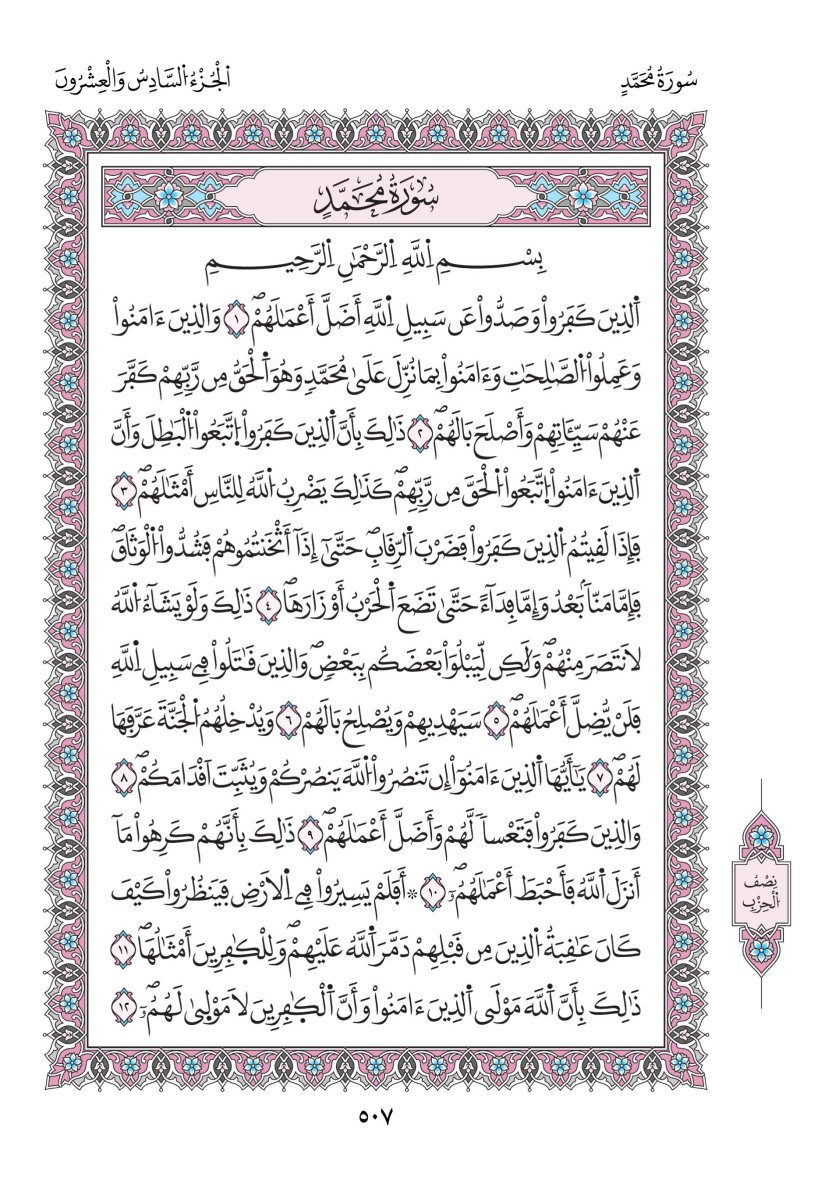 سُورَةُ مُحَمَّدٍ
اَلْجُزْءُ اُ۬لسَّادِسُ وَالْعِشْرُونَ
سُورَةُ مُحَمَّدٍ
بِسْمِ اِ۬للَّهِ اِ۬لرَّحْمَٰنِ اِ۬لرَّحِيمِ
اَ۬لذِينَ كَفَرُواْ وَصَدُّواْ عَن سَبِيلِ اِ۬للَّهِ أَضَلَّ أَعْمَٰلَهُمْۖ ١ وَالذِينَ ءَامَنُواْ
وَعَمِلُواْ اُ۬لصَّٰلِحَٰتِ وَءَامَنُواْ بِمَا نُزِّلَ عَلَىٰ مُحَمَّدٖ وَهُوَ اَ۬لْحَقُّ مِن رَّبِّهِمْ كَفَّرَ
عَنْهُمْ سَيِّـَٔاتِهِمْ وَأَصْلَحَ بَالَهُمْۖ ٢ ذَٰلِكَ بِأَنَّ اَ۬لذِينَ كَفَرُواْ اُ۪تَّبَعُواْ اُ۬لْبَٰطِلَ وَأَنَّ
اَ۬لذِينَ ءَامَنُواْ اُ۪تَّبَعُواْ اُ۬لْحَقَّ مِن رَّبِّهِمْۖ كَذَٰلِكَ يَضْرِبُ اُ۬للَّهُ لِلنَّاسِ أَمْثَٰلَهُمْۖ ٣
فَإِذَا لَقِيتُمُ اُ۬لذِينَ كَفَرُواْ فَضَرْبَ اَ۬لرِّقَابِۖ حَتَّىٰٓ إِذَآ أَثْخَنتُمُوهُمْ فَشُدُّواْ اُ۬لْوَثَاقَۖ
فَإِمَّا مَنّاَۢ بَعْدُ وَإِمَّا فِدَآءً حَتَّىٰ تَضَعَ اَ۬لْحَرْبُ أَوْزَارَهَاۖ ٤ ذَٰلِكَ وَلَوْ يَشَآءُ اُ۬للَّهُ
لَانتَصَرَ مِنْهُمْۖ وَلَٰكِن لِّيَبْلُوَاْ بَعْضَكُم بِبَعْضٖۖ وَالذِينَ قَٰتَلُواْ فِے سَبِيلِ اِ۬للَّهِ
فَلَنْ يُّضِلَّ أَعْمَٰلَهُمْۖ ٥ سَيَهْدِيهِمْ وَيُصْلِحُ بَالَهُمْۖ ٦ وَيُدْخِلُهُمُ اُ۬لْجَنَّةَ عَرَّفَهَا
لَهُمْۖ ٧ يَٰٓأَيُّهَا اَ۬لذِينَ ءَامَنُوٓاْ إِن تَنصُرُواْ اُ۬للَّهَ يَنصُرْكُمْ وَيُثَبِّتَ اَقْدَامَكُمْۖ ٨
وَالذِينَ كَفَرُواْ فَتَعْساٗ لَّهُمْ وَأَضَلَّ أَعْمَٰلَهُمْۖ ٩ ذَٰلِكَ بِأَنَّهُمْ كَرِهُواْ مَآ
أَنزَلَ اَ۬للَّهُ فَأَحْبَطَ أَعْمَٰلَهُمُۥٓۖ ١٠ ۞ أَفَلَمْ يَسِيرُواْ فِے اِ۬لَارْضِ فَيَنظُرُواْ كَيْفَ
كَانَ عَٰقِبَةُ اُ۬لذِينَ مِن قَبْلِهِمْ دَمَّرَ اَ۬للَّهُ عَلَيْهِمْۖ وَلِلْكٰ۪فِرِينَ أَمْثَٰلُهَاۖ ١١
ذَٰلِكَ بِأَنَّ اَ۬للَّهَ مَوْلَى اَ۬لذِينَ ءَامَنُواْ وَأَنَّ اَ۬لْكٰ۪فِرِينَ لَا مَوْل۪يٰ لَهُمُۥٓۖ ١٢
نِصْفُ
اُ۬لْحِزْبِ
٥٠٧